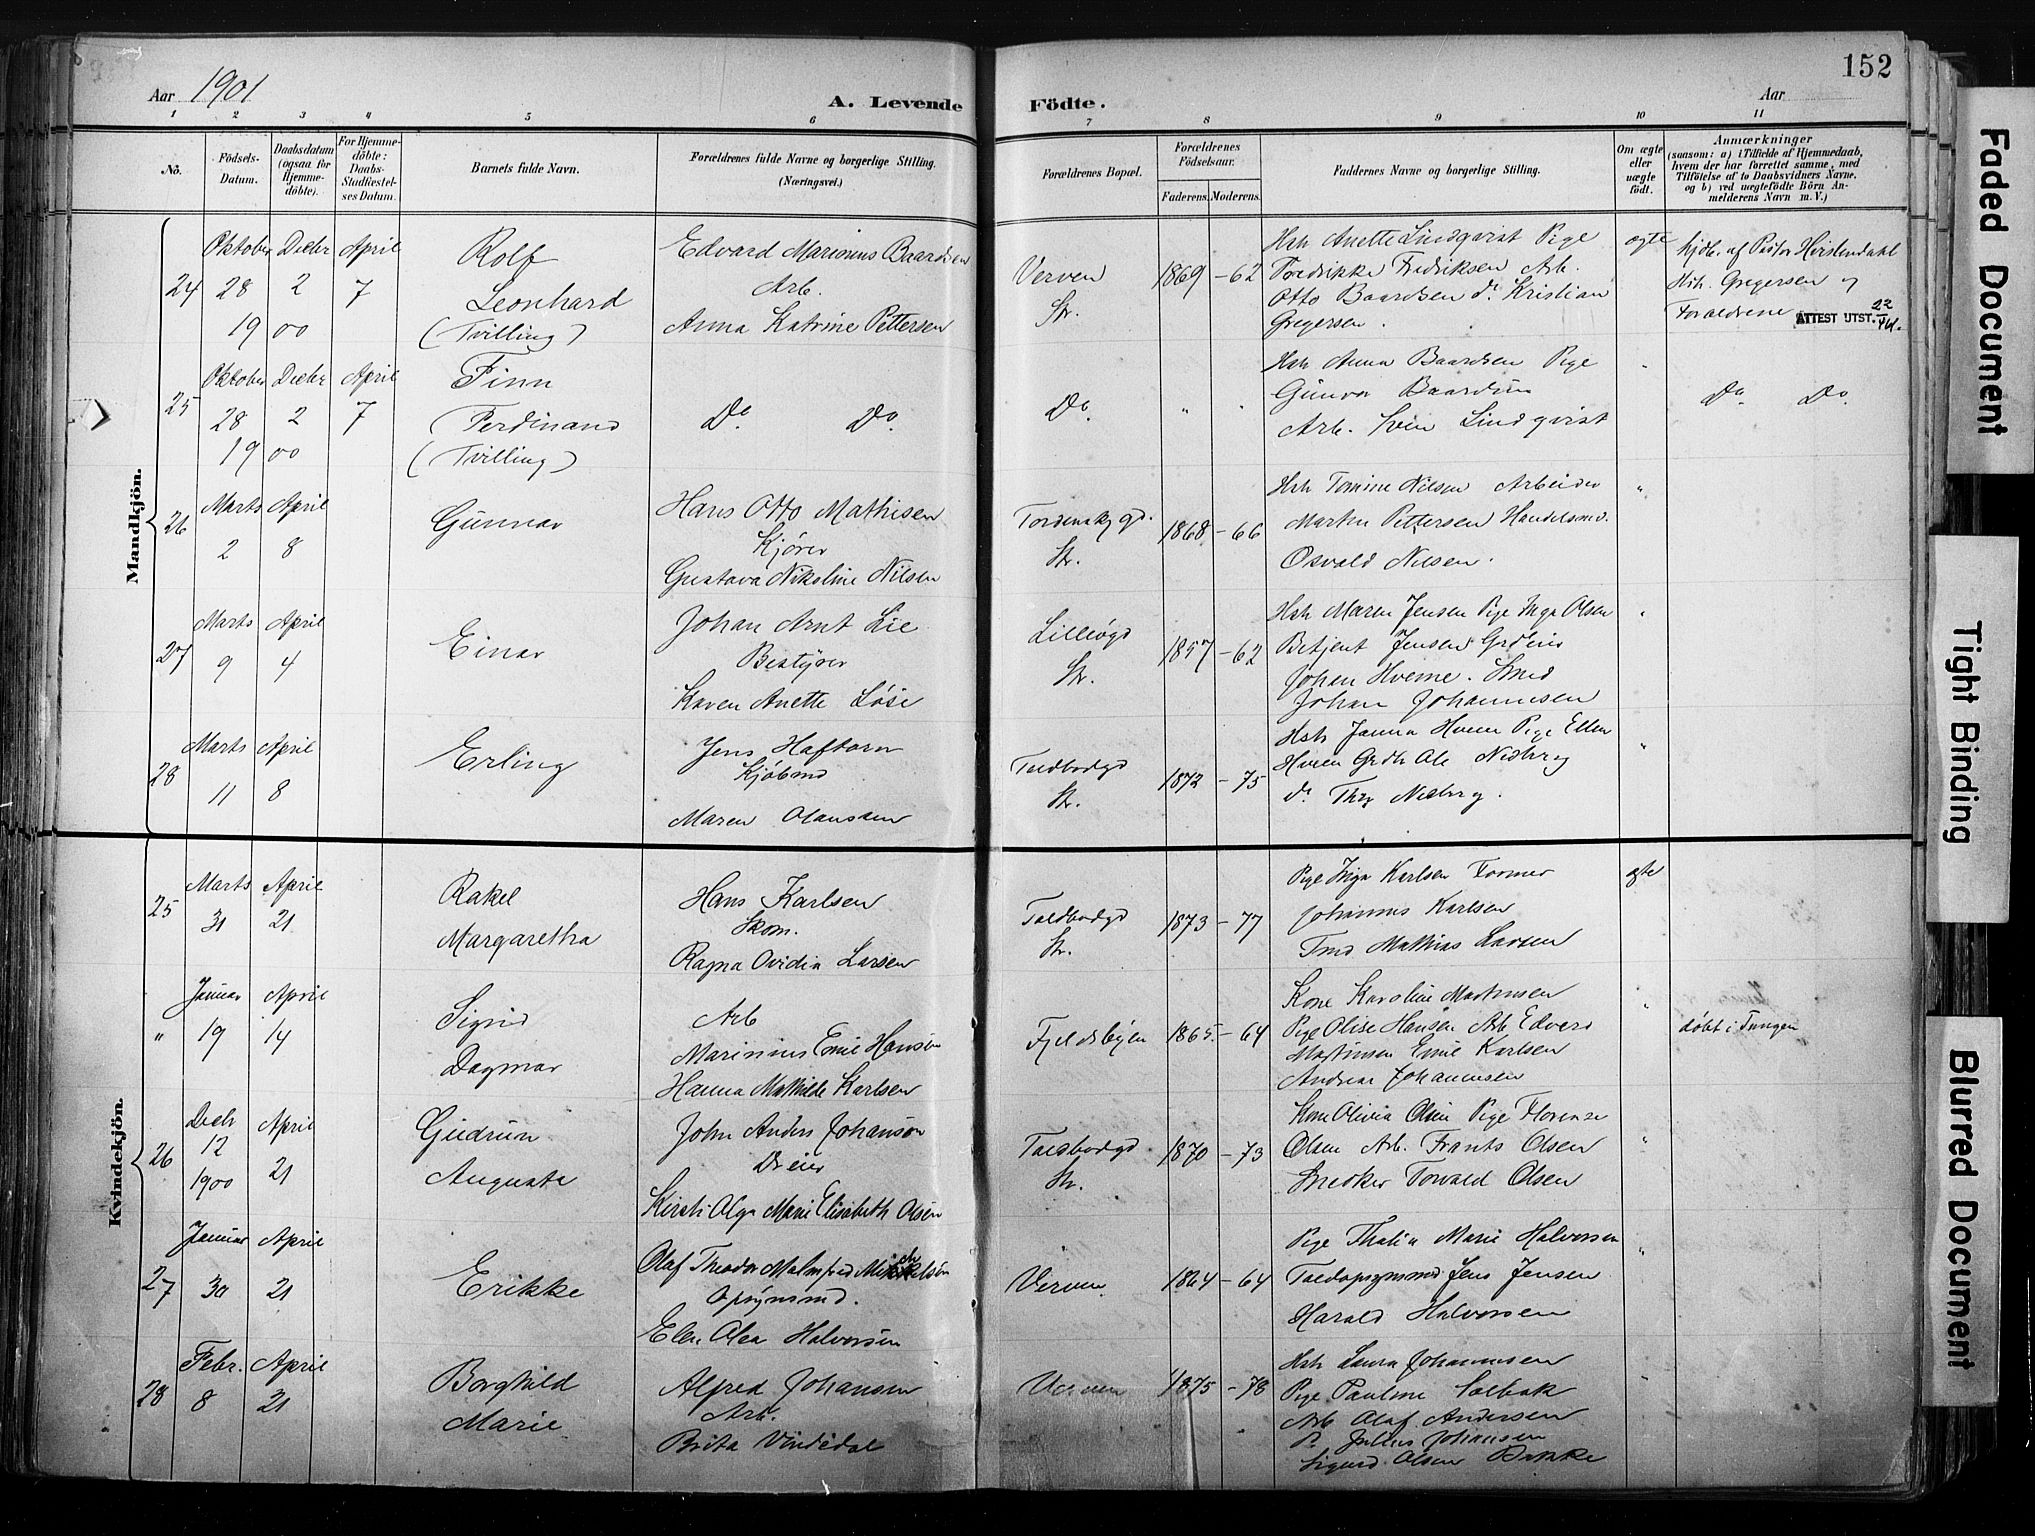 152
Aar 1901
A. Levende Födte.
Aar
1 2 3 4 5 6 7 8 9 10 11
No.
Födsels-Datum.
Daabsdatum (ogsaa for Hjemme-döbte).
For Hjemme-döbte: Daabs-Stadfæstel-ses Datum.
Barnets fulde Navn.
Forældrenes fulde Navne og borgerlige Stilling.
(Næringsvei.)
Forældrenes Bopæl.
Forældrenes Födselsaar.
Faderens. Moderens.
Faddernes Navne og borgerlige Stilling.
Om ægte eller uægte födt.
Anmærkninger
(saasom: a) i Tilfælde af Hjemmedaab, hvem der har forrettet samme, med Tilföielse af to Daabsvidners Navne, og b) ved uægtefödte Börn An-melderens Navn m. V.)
Mandkjön.
24
Oktober Decbr April
28 2 7
1900
Rolf
Leonhard
(Tvilling)
Edvard Marinius Baardsen
Arb.
Anna Katrine Pettersen
Verven
Str.
1869 - 62
Hstr Anette Lindqvist Pige
Fredrikke Fredriksen Arb.
Otto Baardsen do Kristian
Gregersen.
ægte
hjdb. af Pastor
Hstr. Gregersen og
Forældrene
ATTEST UTST. 22
25
Oktober Decbr April
28 2 7
1900
Finn
Ferdinand
(Tvilling)
Do Do
Do.
" "
Hstr Anna Baardsen Pige
Gunvor Baardsen
Arb. Sven Lindqvist
"
Do Do
26
Marts April
2 8
Gunnar
Hans Otto Mathisen
Kjører
Gustava Nikoline Nilsen
Tordenskj gd.
Str.
1868 - 66
Hstr Tomine Nilsen Arbeider
Martin Pettersen Handelsmd.
Osvald Nilsen.
"
27
Marts April
9 4
Einar
Johan Arnt Lie
Bestyrer
Karen Anette Løse
Lilleøgd
Str.
1857 - 62
Hstr Maren Jensen Pige Inga Olsen
Betjent Jensen
Johan Hveme. Smed
Johan Johannesen
"
28
Marts April
11 8
Erling
Jens Haftorn
Kjøbmd
Maren Olaussen
Toldbodgd
Str.
1872 - 75
Hstr Janna Pige Ellen
Ole
do
"
Kvindekjön.
25
Marts April
31 21
Rakel
Margaretha
Hans Karlsen
Skom.
Ragna Ovidia Larsen
Toldbodgd
Str.
1873 - 77
Pige Inga Karlsen Former
Johannes Karlsen
Mathias Larsen
ægte
"
Januar April
19 14
Sigrid
Dagmar
Arb
Marinius Emil Hansen
Hanna Mathilde Karlsen
Fjeldsbyen
1865 - 64
Kone Karoline Martinsen
Pige Olise Hansen Arb Edvard
Martinsen Emil Karlsen
Andreas Johannesen
"
døbt i Tungen
26
Decb April
12
1900 21
Gudrun
Augusta
John Anders Johanson
Dreier
Kirsti Olga Marie Elisabeth Olsen
Toldbodgd
Str.
1870 - 73
Kone Olivia Olsen Pige Florense
Olsen Arb. Frants Olsen
Snedker Torvald Olsen
"
27
Januar April
30 21
Erikke
Olaf Theodor Malmfred Mikkelsen
Opsynsmd.
Elen Olea Halvorsen
Verven
1864 - 64
Pige Thalia Marie Halvorsen
Toldopsynsmd Jens Jensen
Harald Halvorsen
"
28
Febr. April
8 21
Borghild
Marie
Alfred Johansen
Arb.
Brita Vindedal
Verven
1875 - 78
Hstr Laura Johannesen
Pige Pauline Solbak
Arb Olaf Andersen
Do Julius Johansen
Sigurd Olsen Bakke
"
Faded Document
Tight Binding
Blurred Document